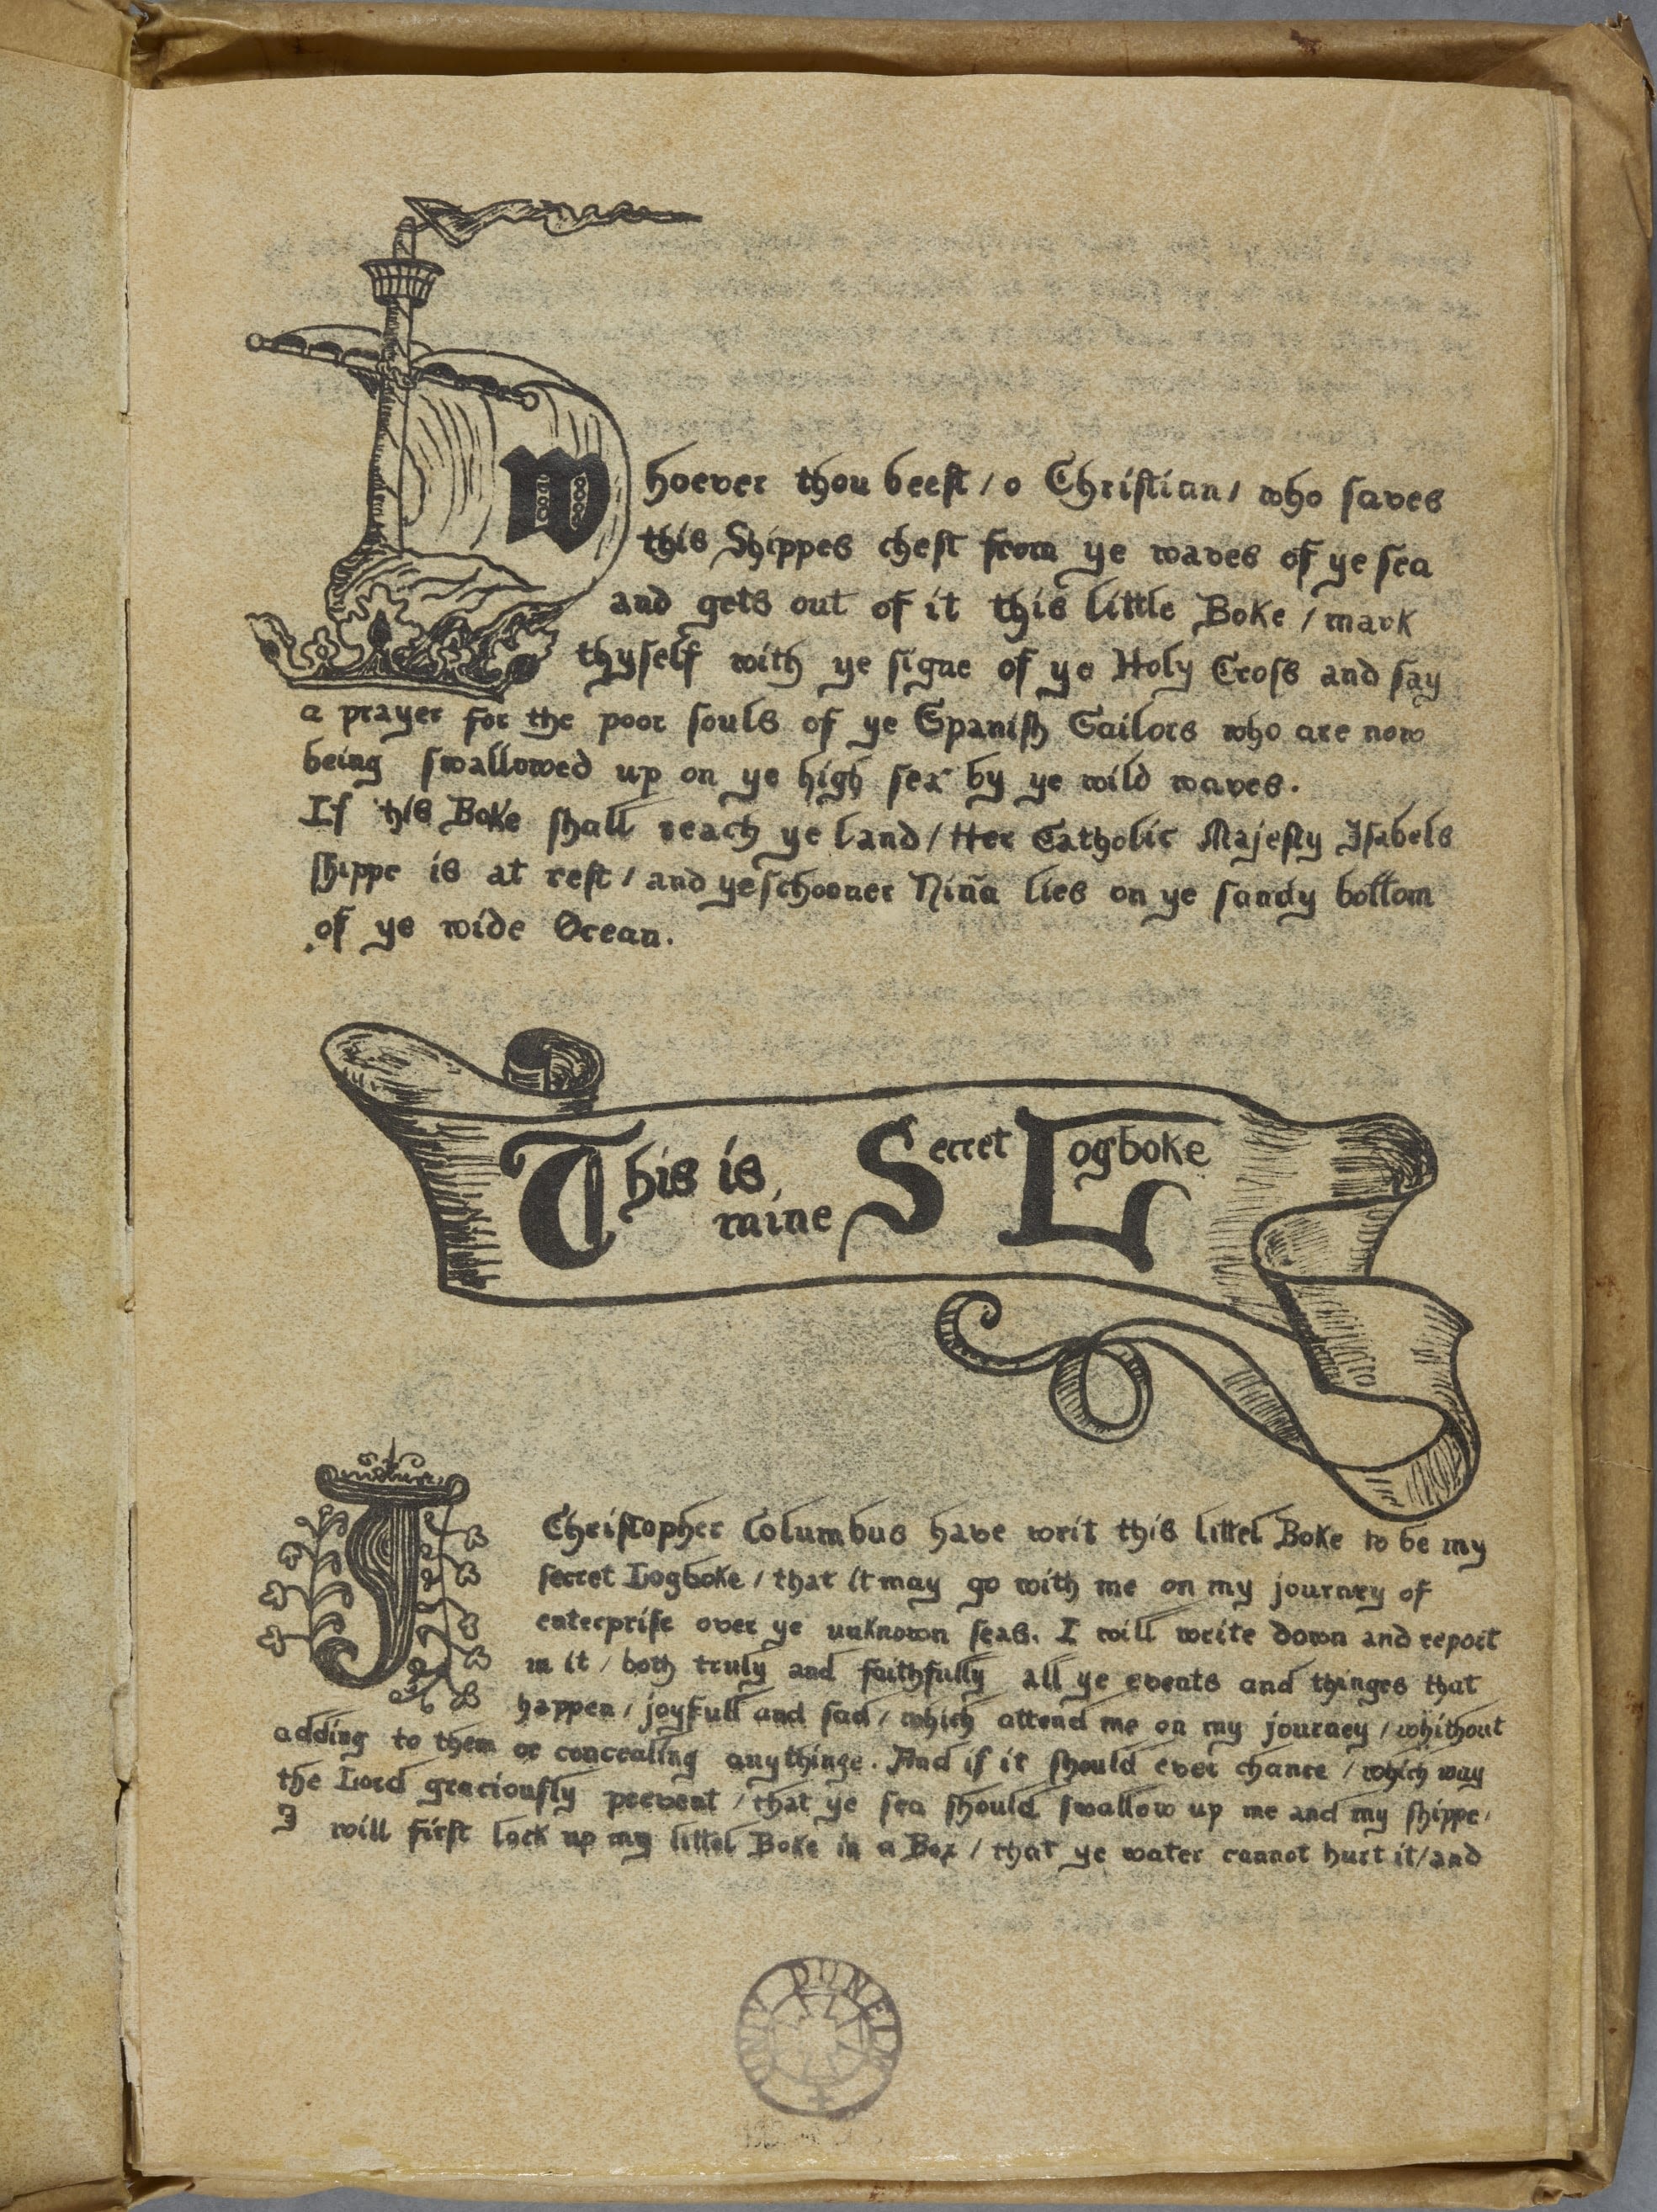 Whoever thou beest / o Christian / who saves
this Shippes chest from ye waves of ye sea
and gets out of it this little Boke / mark
thyself with ye signe of ye Holy Cross and say
a prayer for the poor souls of ye Spanish Sailors who are now
being swallowed up on ye high sea by ye wild waves.
If this Boke shall reach ye land / Her Catholic Majesty Isabels
shippe is at rest / and ye schooner Niña lies on ye sandy bottom
of ye wide Ocean.
This is mine Secret Logboke
I Christopher Columbus have writ this littel Boke to be my
secret Logboke / that it may go with me on my journey of
enterprise over ye unknown seas. I will write down and report
in it / both truly and faithfully all ye events and thinges that
happen / joyfull and sad / which attend me on my journey / whithout
adding to them or concealing anythinge. And if it should ever chance / which may
the Lord graciously prevent / that ye sea should swallow up me and my shippe /
I will first lock up my littel Boke in a Box / that ye water cannot hurt it / and
UNIV DUNELM